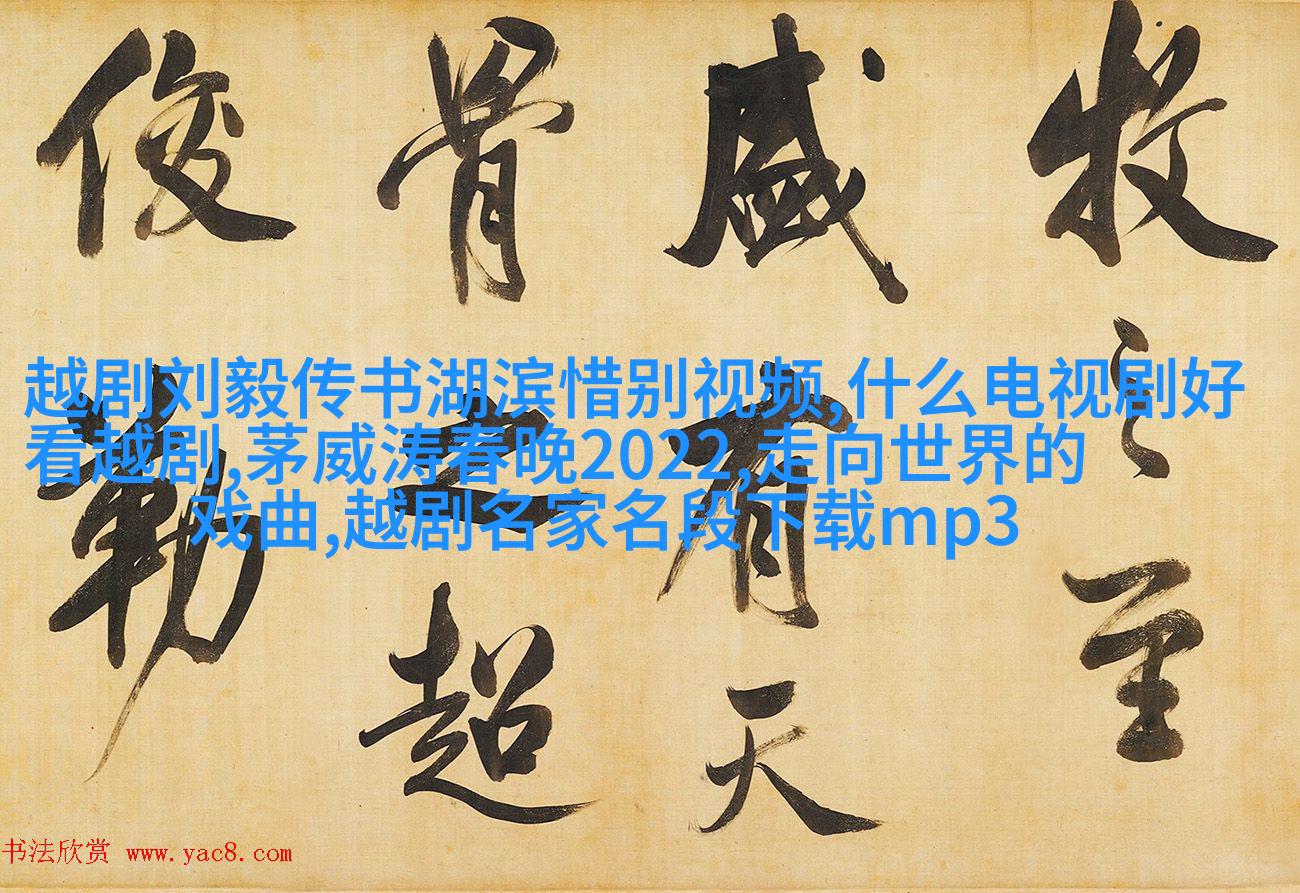 牧之至
盛有天
骨之超
俊勒
越剧刘毅传书湖滨惜别视频,什么电视剧好
看越剧,茅威涛春晚2022,走向世界的
戏曲,越剧名家名段下载mp3
书法欣赏 www.yac8.com